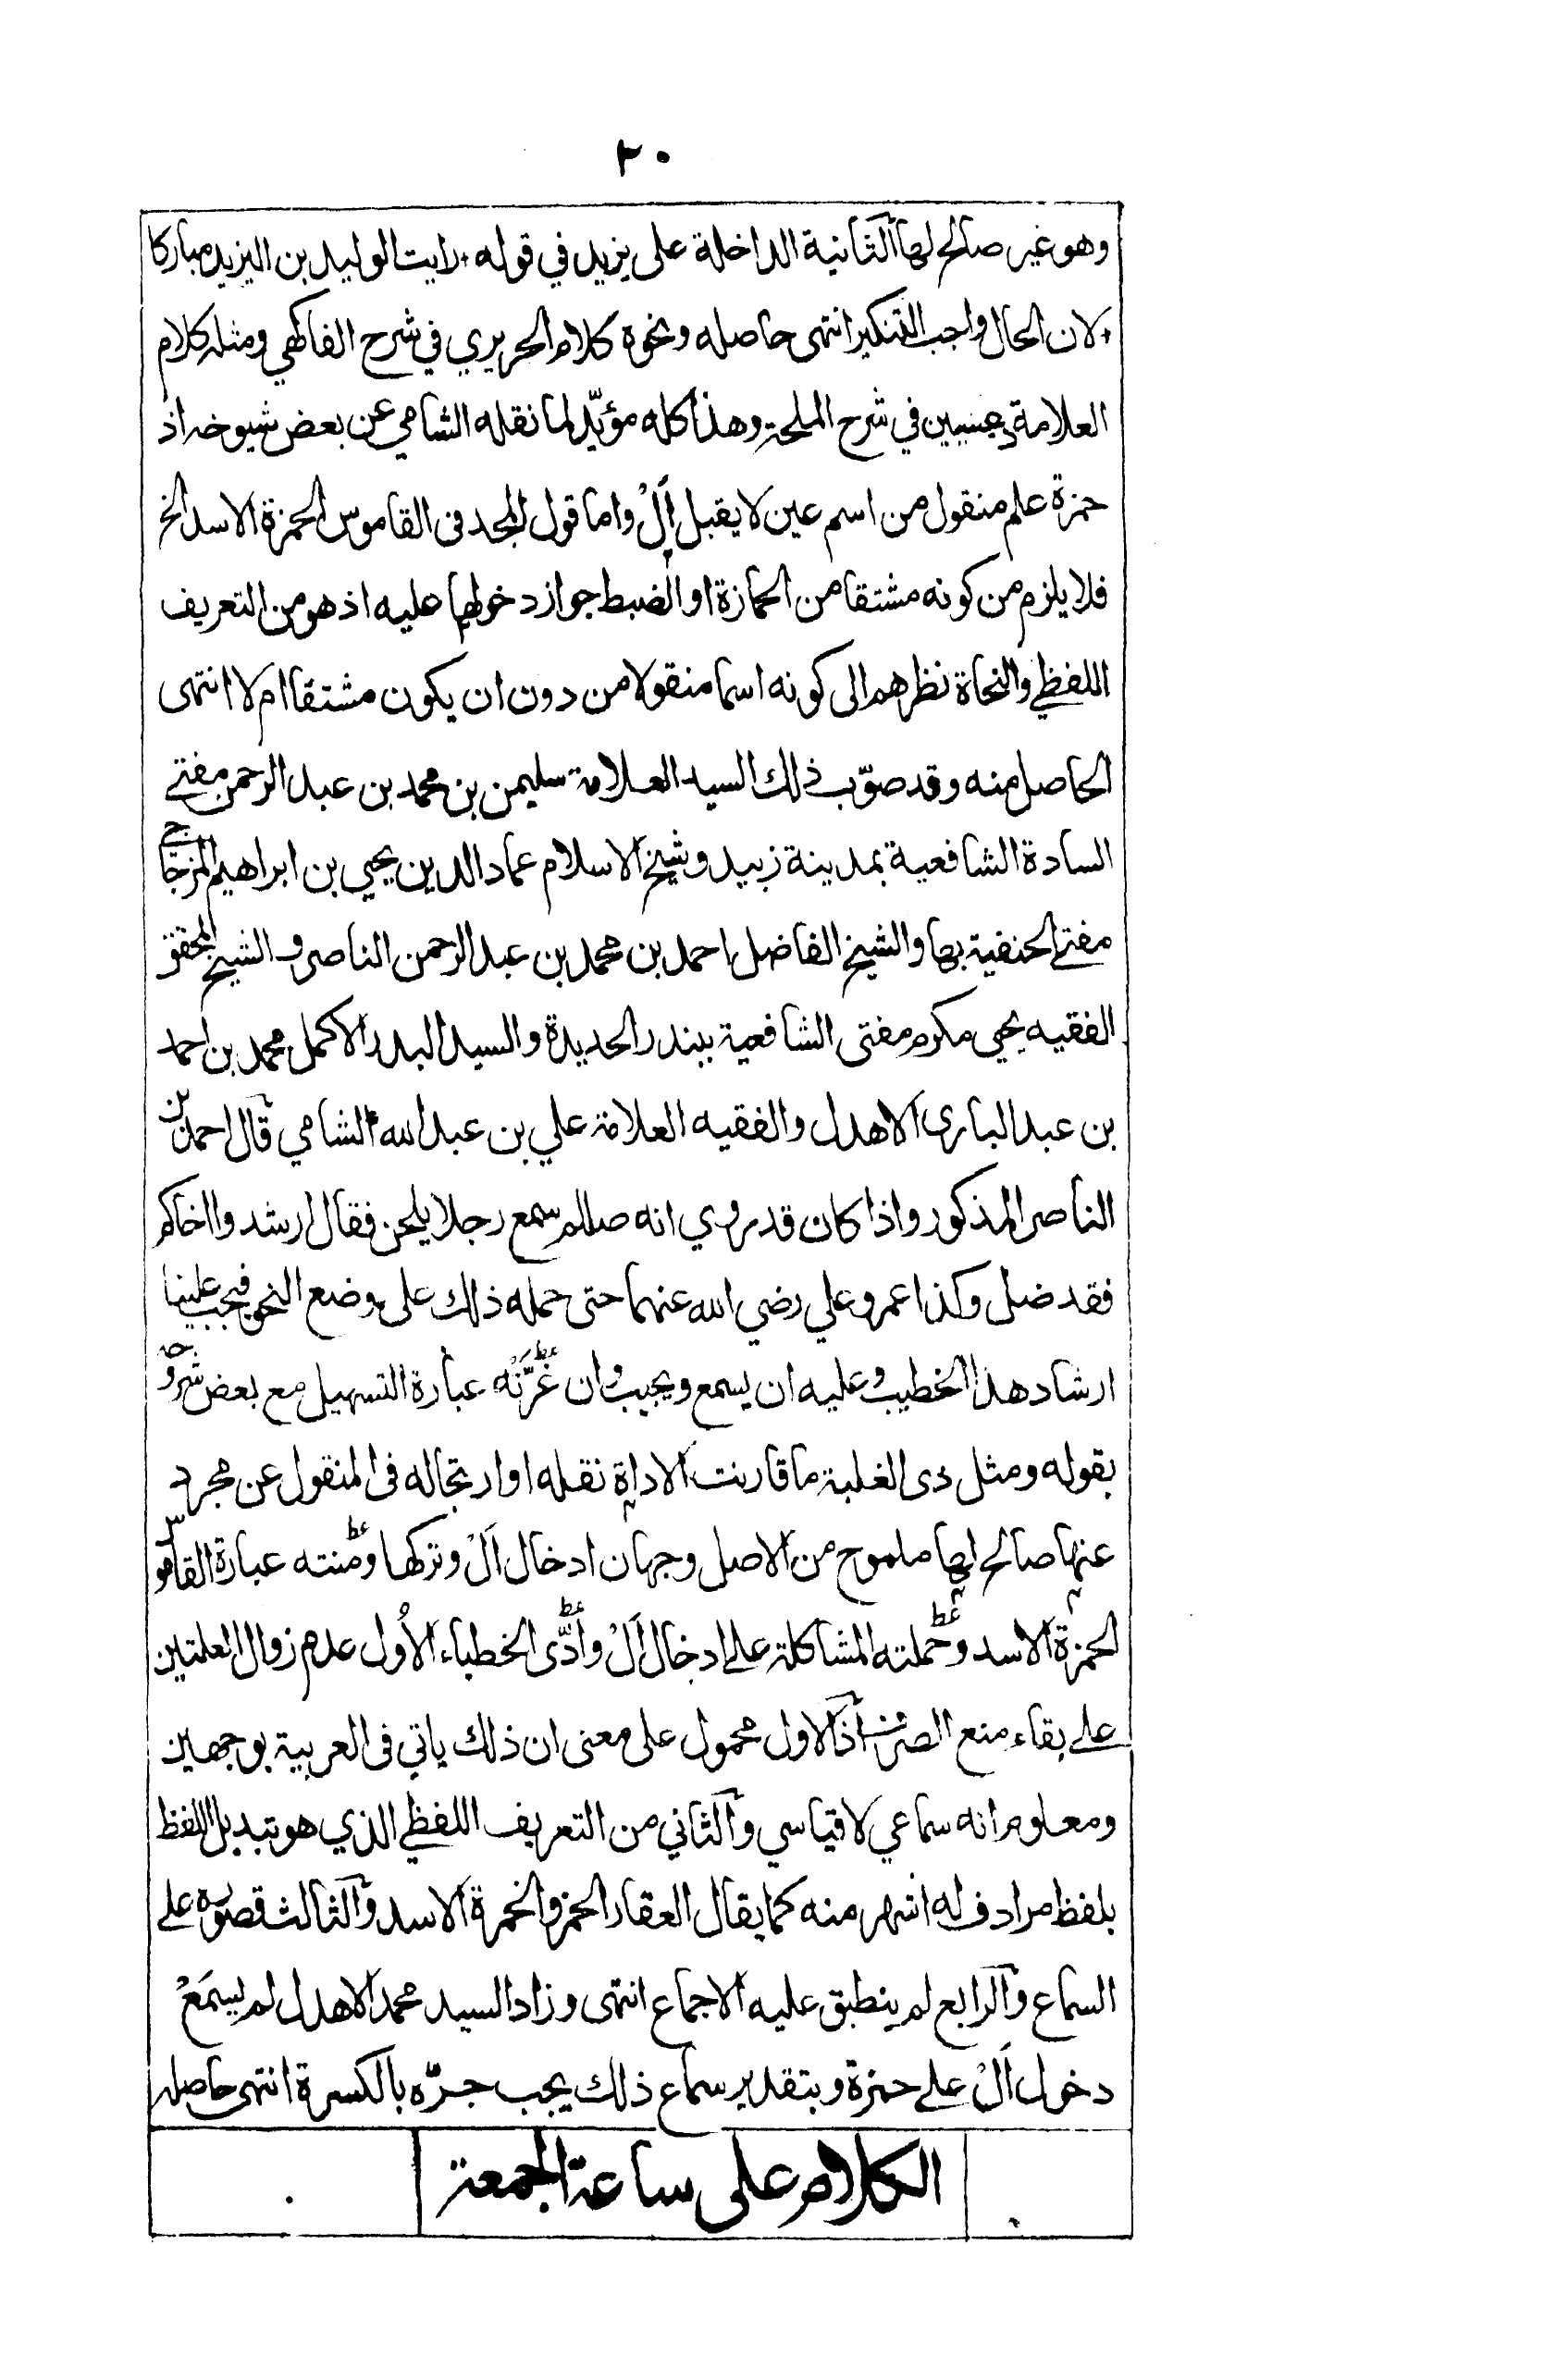 ٣٠
وهو غير صالح لها الثانية الداخلة على يزيد في قوله رايت الوليد بن اليزيد مباركا
لان الحال واجب التنكير انتهى حاصله ونحوه كلام الحريري في شرح الفاكهي ومثله كلام
العلامة في شرح الملحة وهذا كله مؤيّد لما نقله الشامي عن بعض شيوخه اذ
حمزة علم منقول من اسم عين لا يقبل اَلْ واما قول المجد فى القاموس الحمزة الاسد الخ
فلا يلزم من كونه مشتقا من الحمازة او الضبط جواز دخولها عليه اذ هو من التعريف
اللفظي والنحاة نظرهم الى كونه اسما منقولا من دون ان يكون مشتقا ام لا انتهى
الحاصل منه وقد صوّب ذلك السيد العلامة سليمن بن محمد بن عبد الرحمن مفتے
السادة الشافعية بمدينة زبيد وشيخ الاسلام عماد الدين يحيي بن ابراهيم المزجاجي
مفتے الحنفية بها والشيخ الفاضل احمد بن محمد بن عبد الرحمن الناصر و الشيخ المحقق
الفقيه يحيى مكرم مفتى الشافعية ببندر الحديدة والسيد البدر الاكمل محمد بن احمد
بن عبد البارى الاهدل والفقيه العلامة علي بن عبد الله الشامي قال احمد بن
الناصر المذكور واذا كان قد روي انه صللم سمع رجلا يلحن فقال ارشدوا اخاكم
فقد ضل وكذا عمر وعلي رضي الله عنهما حتى حمله ذلك على وضع النحو فيجب علينا
ارشاد هذا الخطيب وعليه ان يسمع ويجيب وان غَرَّتْه عبارة التسهيل مع بعض شروحه
بقوله ومثل ذى الغلبة ما قارنت الاداة نقله او ارتجاله فى المنقول عن مجرد
عنها صالح لها ملموح من الاصل وجهان ادخال اَلْ وتركها ومنته عبارة القاموس
الحمزة الاسد وحملته المشاكلة علے ادخال اَلْ وادّى الخطباء الاُول عدم زوال العلتين
علے بقاء منع الصرف اذ الاول محمول على معنى ان ذلك ياتي فى العربية بوجهين
ومعلوم انه سماعي لا قياسي والثاني من التعريف اللفظي الذي هو تبديل اللفظ
بلفظ مرادف له اشهر منه كما يقال العقار الخمر والحمزة الاسد والثالث قصوره على
السماع والرابع لم ينطبق عليه الاجماع انتهى وزاد السيد محمد الاهدل لم يسمَعْ
دخول اَلْ علے حمزة وبتقدير سماع ذلك يجب جرّه بالكسرة انتهى حاصله
الكلام على ساعة الجمعة